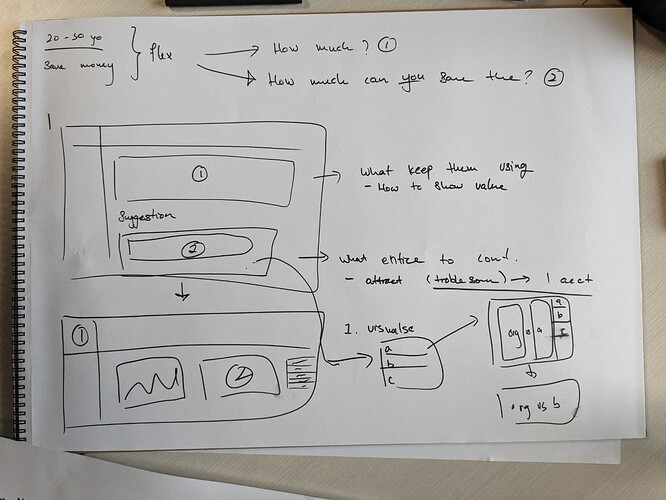 20 - 30 yo
Save money
flex
How much? ①
How much can you save the? ②
1
①
what keep them using
- How to show value
Suggestion
②
what entice to cont.
- attract (troblesom) → 1 acct
①
②
1. visualse
a
b
c
org
a
a
b
org vs b